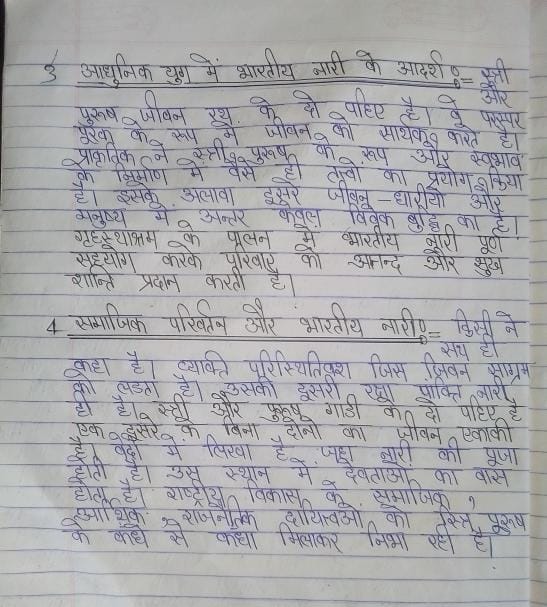 3 आधुनिक युग में भारतीय नारी के आदर्श :- स्त्री
और
पुरुष जीवन रथ के दो पहिए है। वे परस्पर
पूरक के रूप में जीवन को सार्थक करते है।
प्रकृतिक ने स्त्री, पुरुष को रूप और स्वभाव
के निर्माण में वैसे ही तत्वो का प्रयोग किया
है। इसके अलावा दूसरे जीवन-धारीयो और
मनुष्य में अन्तर केवल विवेक बुद्धि का है।
गृहस्थाश्रम के पालन में भारतीय नारी पूर्ण
सहयोग करके परिवार को आनन्द और सुख
शान्ति प्रदान करती है।
4 समाजिक परिवर्तन और भारतीय नारी :- किसी ने
सच ही
कहा है। व्यक्ति परिस्थितिवश जिस जिवन संग्राम
को लडता है। उसकी दूसरी रक्षा पंक्ति नारी
ही है। स्त्री और पुरुष गाडी के दो पहिए है
एक दूसरे के बिना दोनो का जीवन एकाकी
है। वेदो में लिखा है जहा नारी की पूजा
होती है। उस स्थान में देवताओ का वास
होता है। राष्ट्रीय विकास के समाजिक,
आर्थिक, राजनैतिक दायित्वओ को स्त्री पुरुष
के कांधे से कांधा मिलाकर निभा रही है।